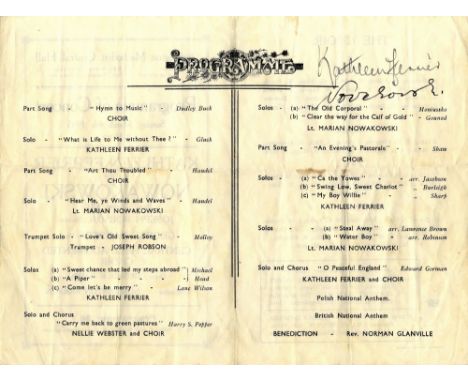 PROGRAMME
Part Song - "Hymn to Music" - Dudley Buck
CHOIR
Solo - "What is Life to Me without Thee?" - Gluck
KATHLEEN FERRIER
Part Song - "Art Thou Troubled" - Handel
CHOIR
Solo - "Hear Me, ye Winds and Waves" - Handel
Lt. MARIAN NOWAKOWSKI
Trumpet Solo - "Love's Old Sweet Song" - Molloy
Trumpet - JOSEPH ROBSON
Solos (a) "Sweet chance that led my steps abroad" Michael
(b) "A Piper" - Head
(c) "Come let's be merry" - Lane Wilson
KATHLEEN FERRIER
Solo and Chorus
"Carry me back to green pastures" - Harry S. Pepper
NELLIE WEBSTER and CHOIR
Kathleen Ferrier
Nowakowski
Solos - (a) "The Old Corporal" - Moniusko
(b) "Clear the way for the Calf of Gold" - Gounod
Lt. MARIAN NOWAKOWSKI
Part Song - "An Evening's Pastorale" - Shaw
CHOIR
Solos - (a) "Ca the Yowes" - arr. Jacobson
(b) "Swing Low, Sweet Chariot" - Burleigh
(c) "My Boy Willie" - Sharp
KATHLEEN FERRIER
Solos - (a) "Steal Away" - arr. Laurence Brown
(b) "Water Boy" - arr. Robinson
Lt. MARIAN NOWAKOWSKI
Solo and Chorus "O Peaceful England" - Edward German
KATHLEEN FERRIER and CHOIR
Polish National Anthem.
British National Anthem
BENEDICTION - Rev. NORMAN GLANVILLE